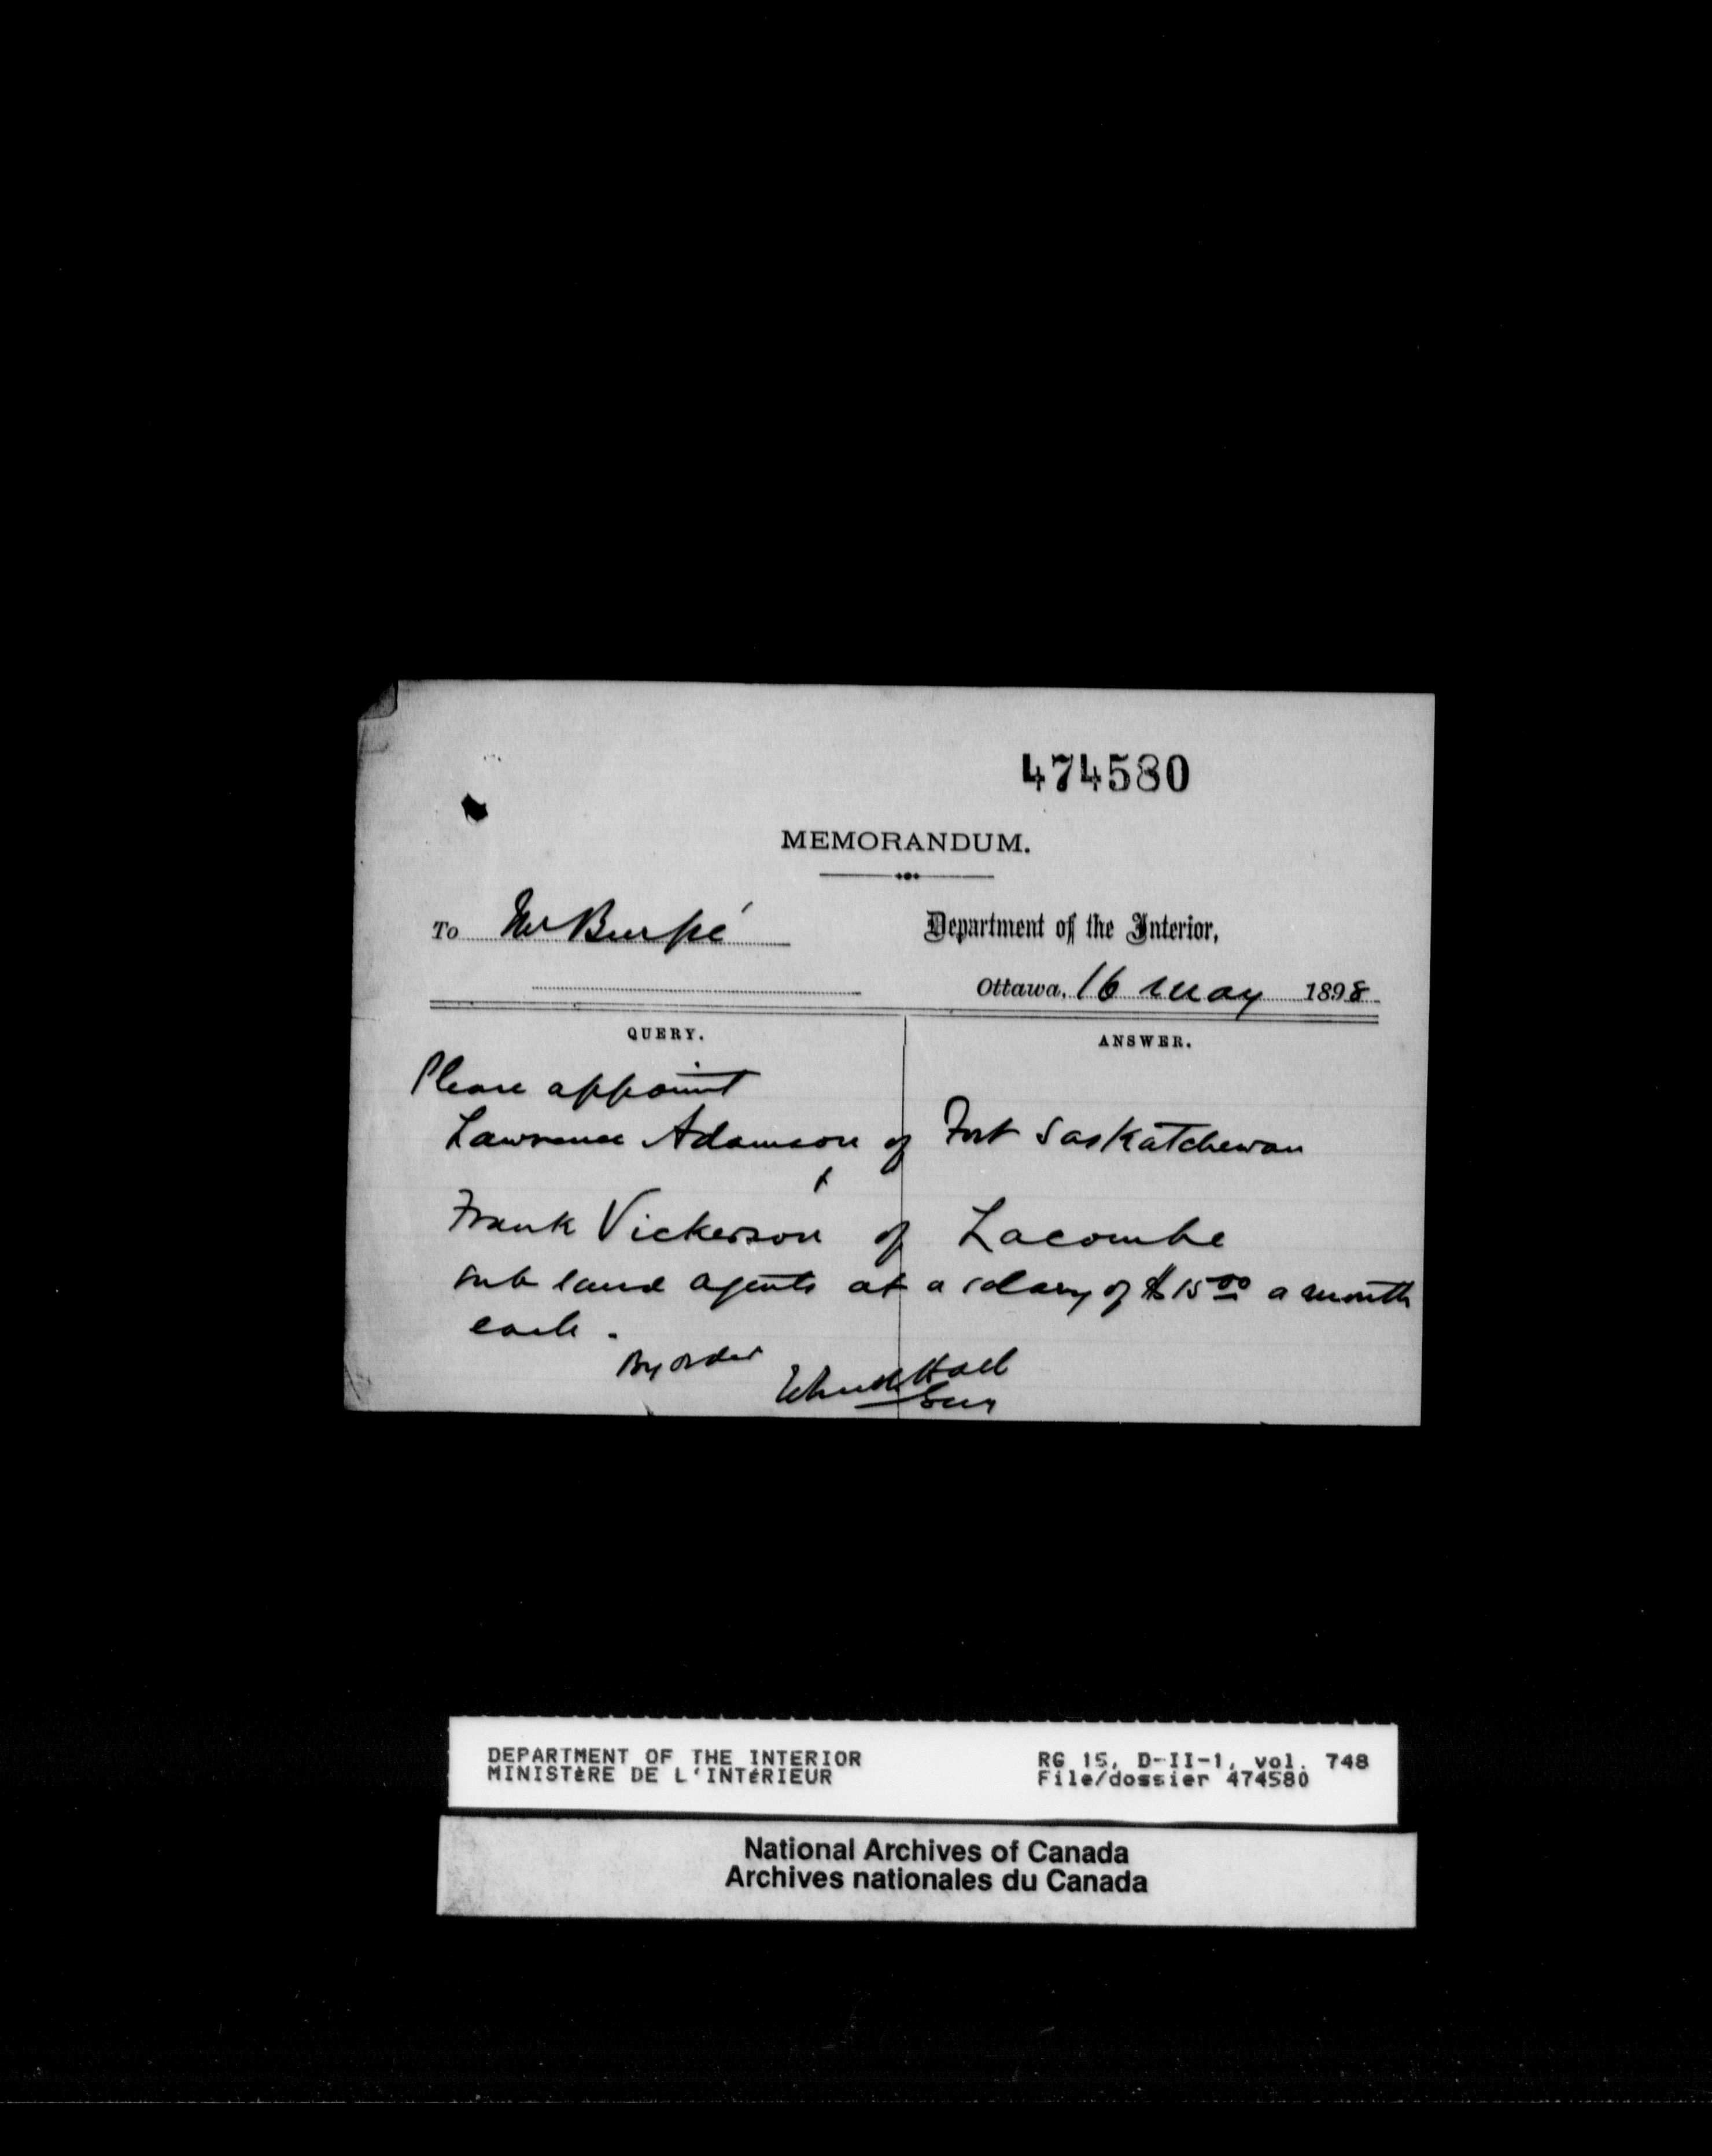 474580
MEMORANDUM.
To Mr Burpé
Department of the Interior,
Ottawa, 16 May 1898
QUERY. ANSWER.
Please appoint
Lawrence Adamson of Fort Saskatchewan
&
Frank Vickerson of Lacombe
sub land agents at a salary of $15 00 a month
each.
By order
DEPARTMENT OF THE INTERIOR
MINISTèRE DE L'INTéRIEUR
RG 15, D-II-1, vol. 748
File/dossier 474580
National Archives of Canada
Archives nationales du Canada